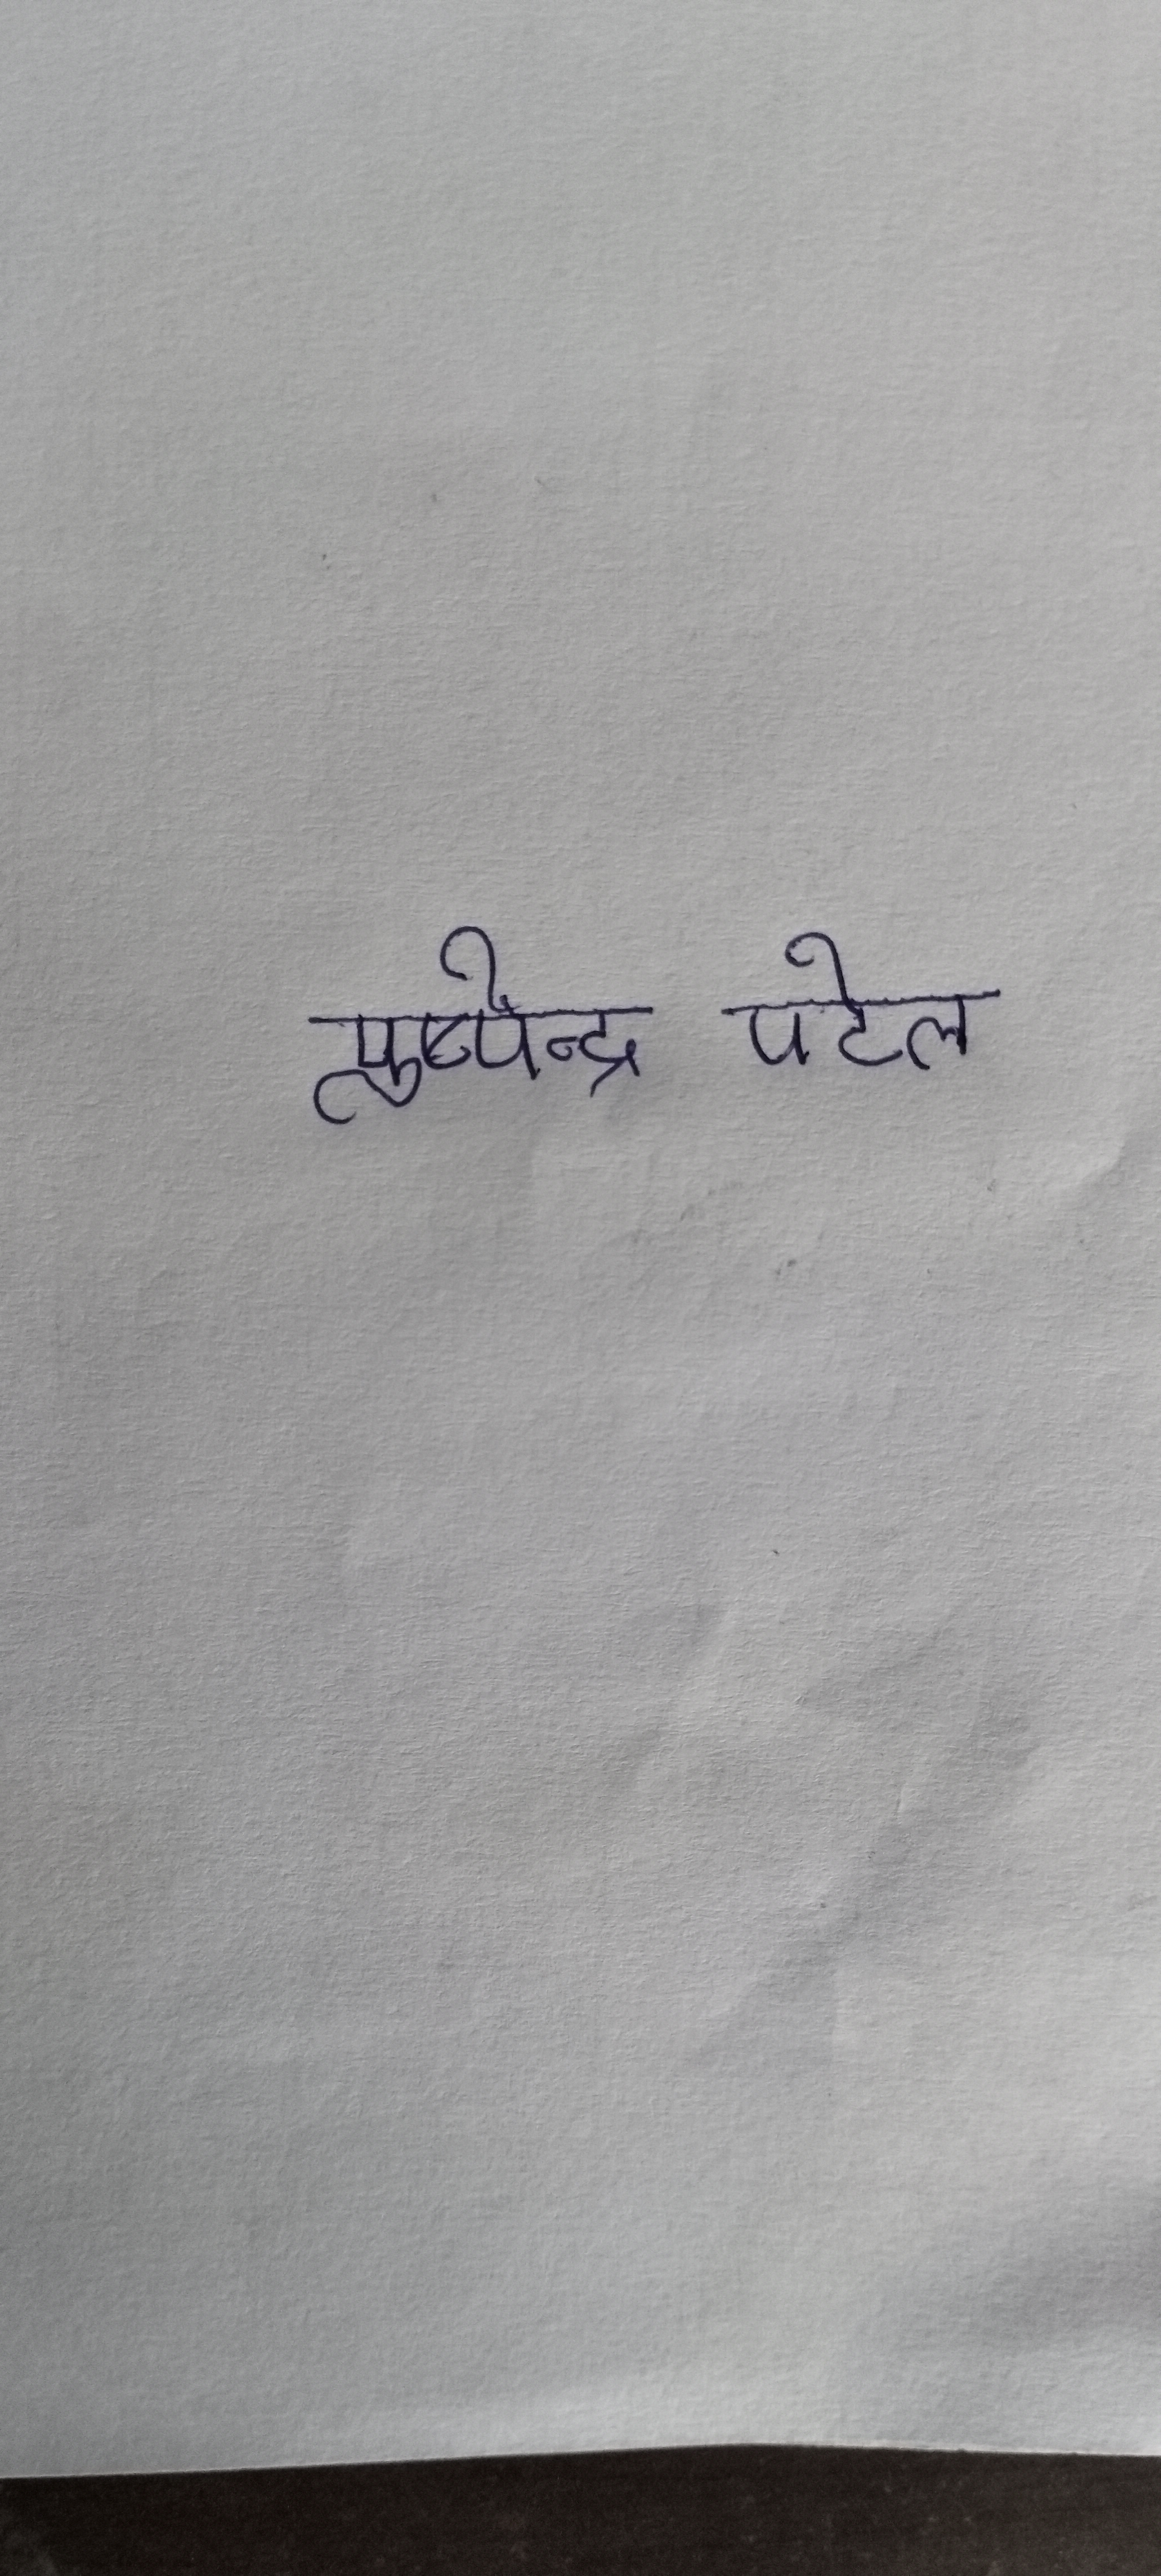 पुष्पेन्द्र पटेल